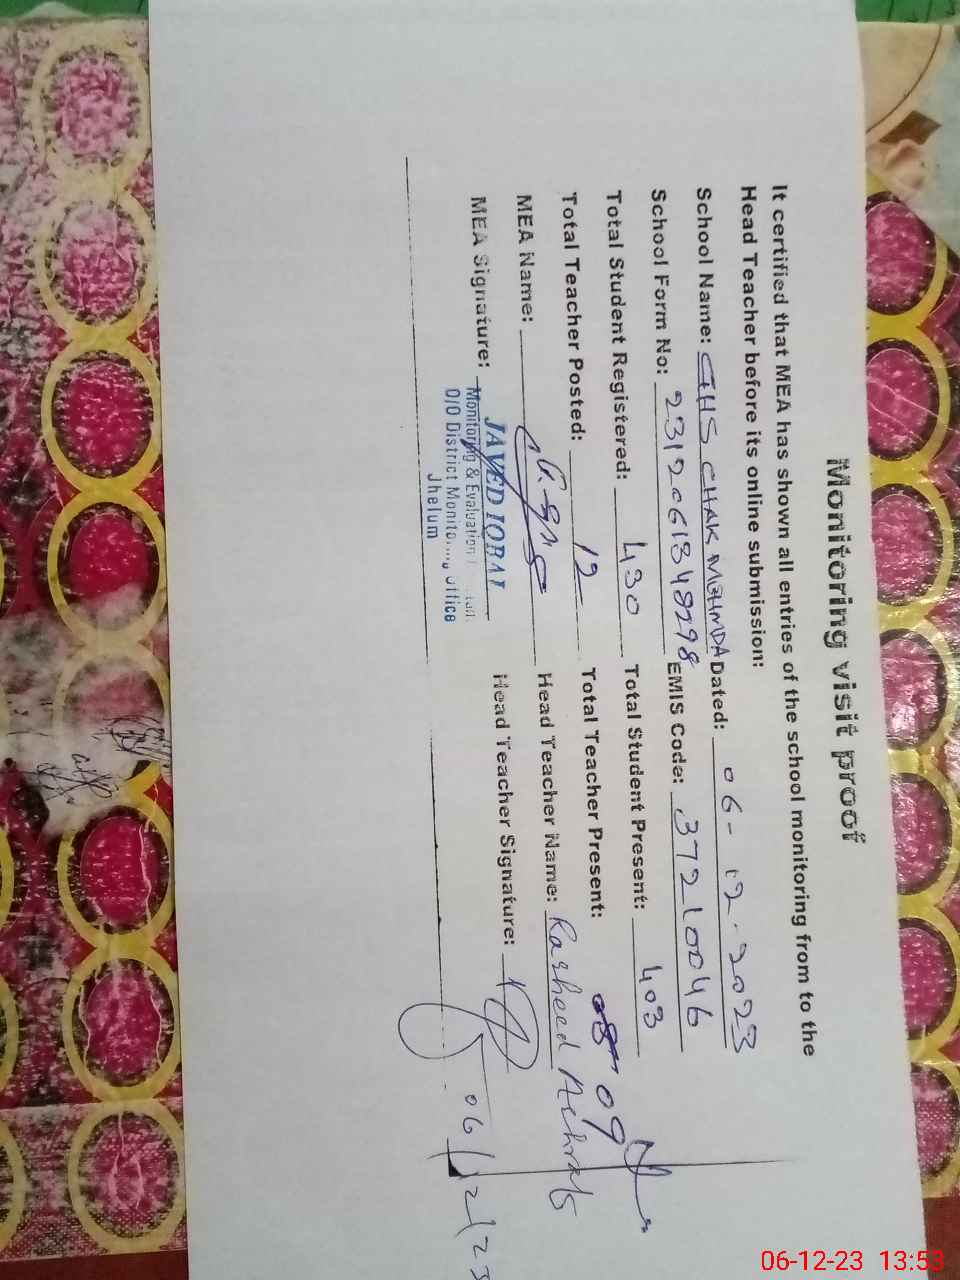 Monitoring visit proof
It certified that MEA has shown all entries of the school monitoring from to the
Head Teacher before its online submission:
School Name: GHS CHAK MEHMDA Dated: 06-12-2023
School Form No: 2312061348298 EMIS Code: 37210046
Total Student Registered: 430 Total Student Present: 403
Total Teacher Posted: 12 Total Teacher Present: 08 09
MEA Name: Head Teacher Name: Rasheed Ashraf
MEA Signature: Head Teacher Signature:
JAVED IQBAL
Monitoring & Evaluation
O/O District Monitoring Office
Jhelum
06/12/23
06-12-23 13:53